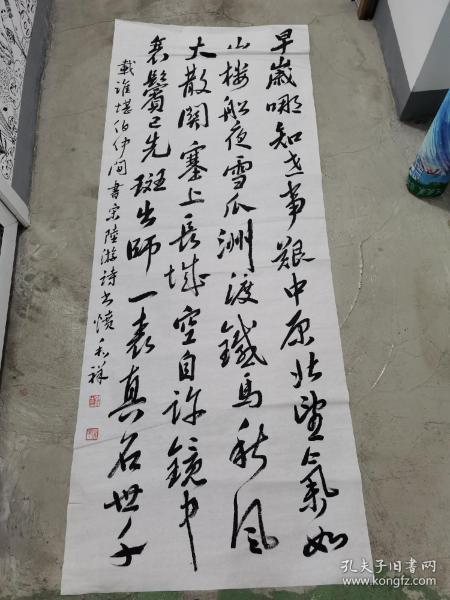 早歲哪知世事艱中原北望氣如
山樓船夜雪瓜洲渡鐵馬秋風
大散關塞上長城空自許鏡中
衰鬢已先斑出師一表真名世千
載誰堪伯仲間書宋陸游詩書憤祥
孔夫子旧书网
www.kongfz.com